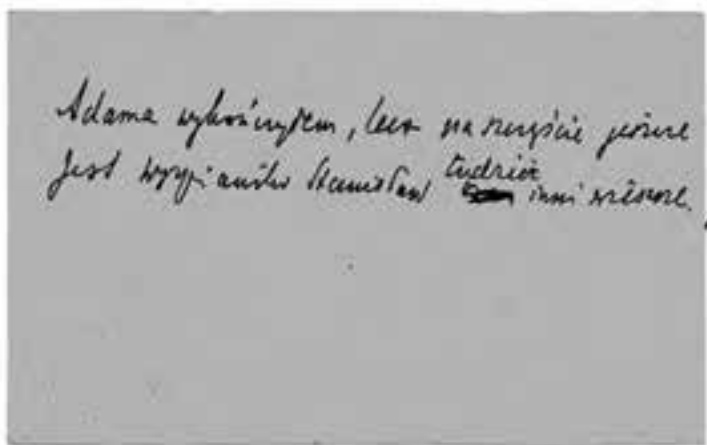 Adama wykończyłem, lecz na szczęście jeszcze
Jest Wyspiański Stanisław tudzież inni wieszcze.